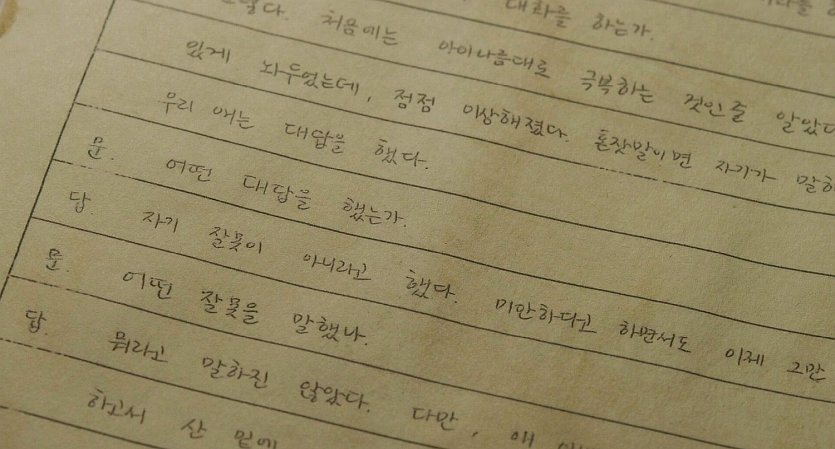 대화를 하는가.
처음에는 아이나름대로 극복하는 것인줄 알았다
있게 놔두었는데, 점점 이상해졌다. 혼잣말이면 자기가 말하
우리 애는 대답을 했다.
문. 어떤 대답을 했는가.
답. 자기 잘못이 아니라고 했다. 미안하다고 하면서도 이제 그만
문. 어떤 잘못을 말했나.
답. 뭐라고 말하진 않았다. 다만, 애
하고서 산 밑에